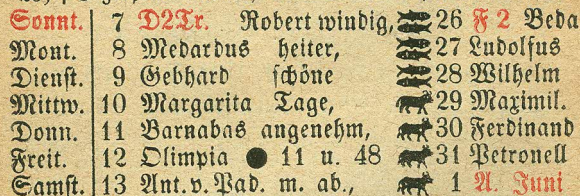 Sonnt. 7 D2Tr. Robert windig, 26 F 2 Beda
Mont. 8 Medardus heiter, 27 Ludolfus
Dienst. 9 Gebhard schöne 28 Wilhelm
Mittw. 10 Margarita Tage, 29 Maximil.
Donn. 11 Barnabas angenehm, 30 Ferdinand
Freit. 12 Olimpia ● 11 u. 48 31 Petronell
Samst. 13 Ant. v. Pad. m. ab., 1 A. Juni